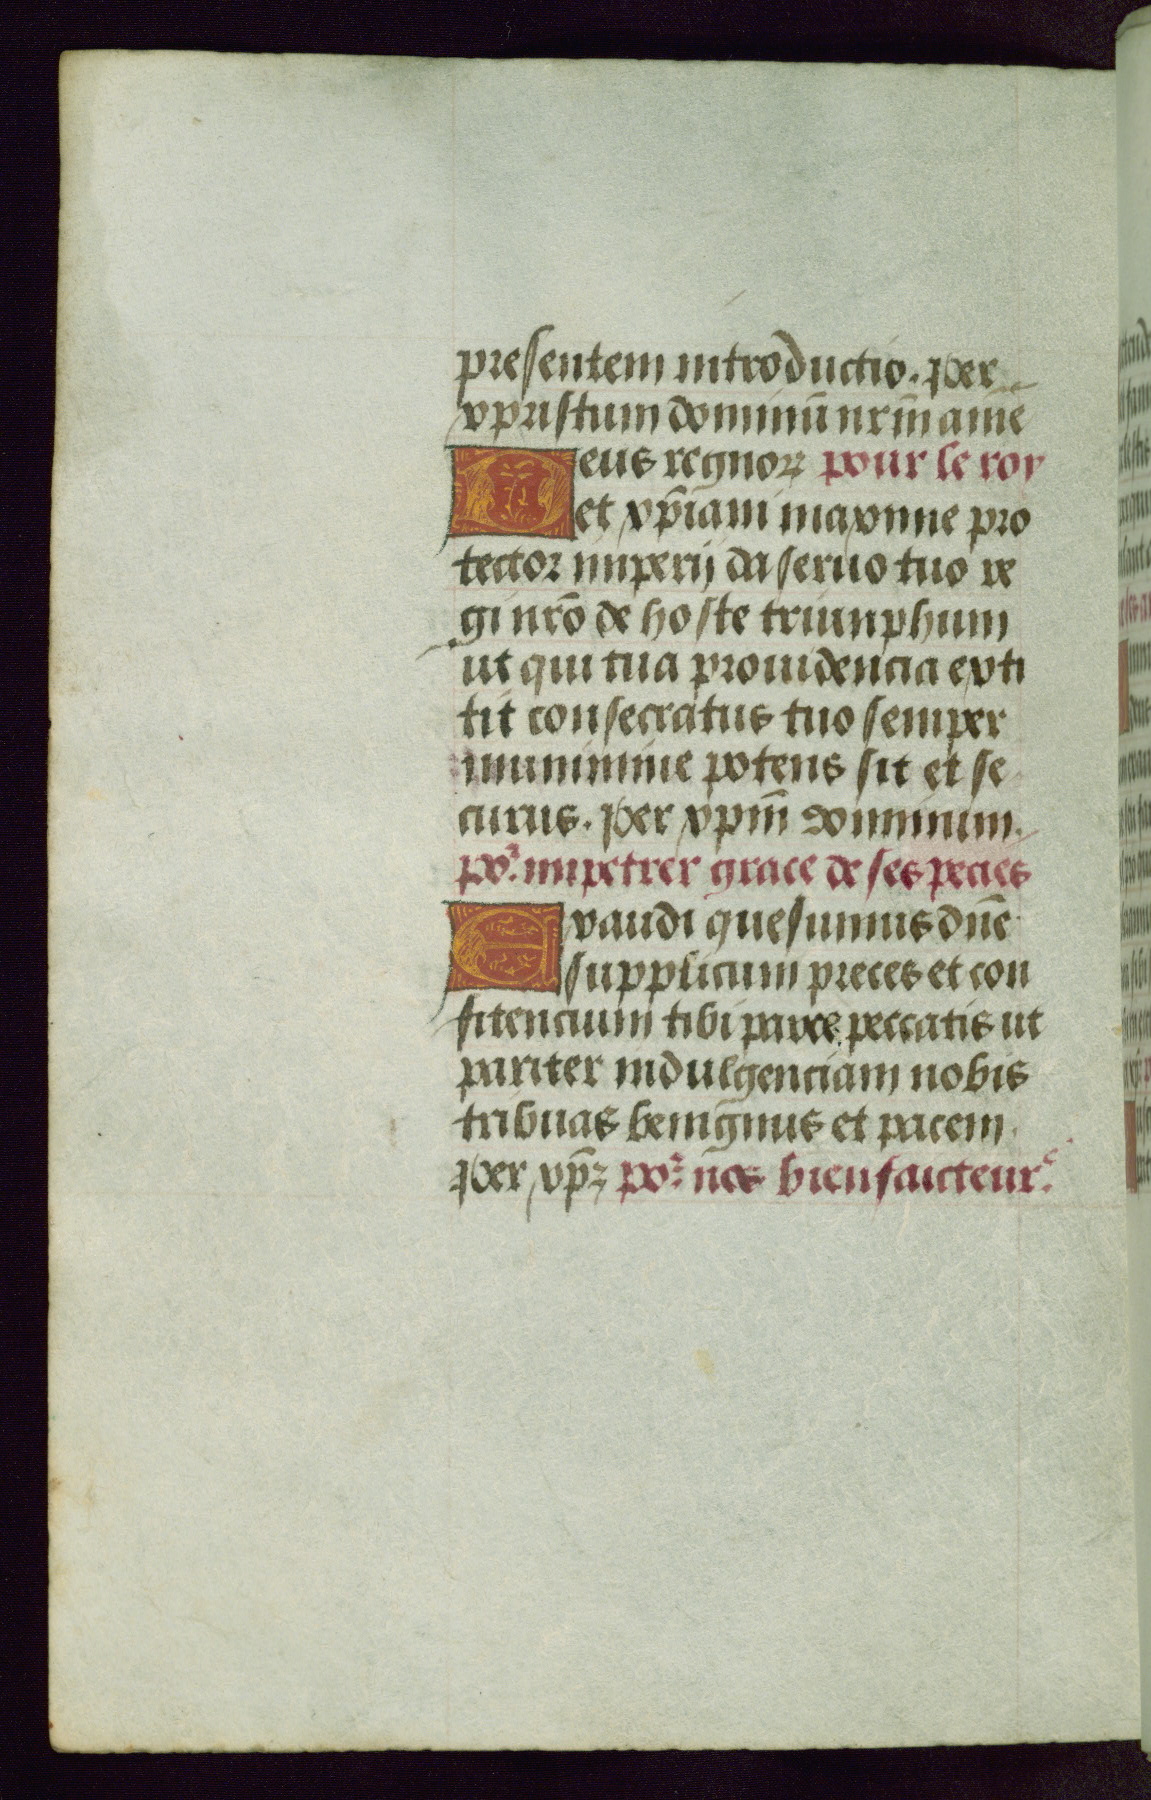 presentem introductio. Per
xpristum dominū nr̄m ame
Deus regnoꝝ pour le roy
et xp̄iani maxime pro
tector imperij da seruo tuo re
gi nr̄o de hoste triumphum
ut qui tua prouidencia exti
tit consecratus tuo semper
munimine potens sit et se
curus. Per xpm̄ dominum.
poᵘʳ impetrer grace de ses pecies
Exaudi quesumus dn̄e
supplicum preces et con
fitencium tibi parce peccatis ut
pariter indulgenciam nobis
tribuas benignus et pacem.
Per xp̄ꝫ poᵘʳ nēs bienfaicteurˢ